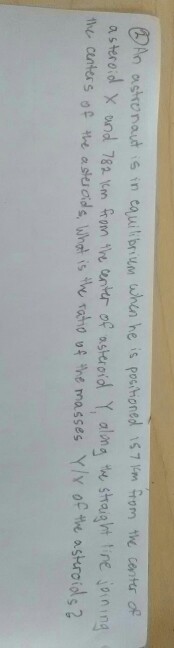 ② An astronaut is in equilibrium when he is positioned 157 km from the center of
asteroid X and 782 km from the center of asteroid Y, along the straight line joining
the centers of the asteroids, What is the ratio of the masses Y/Y of the asteroids?